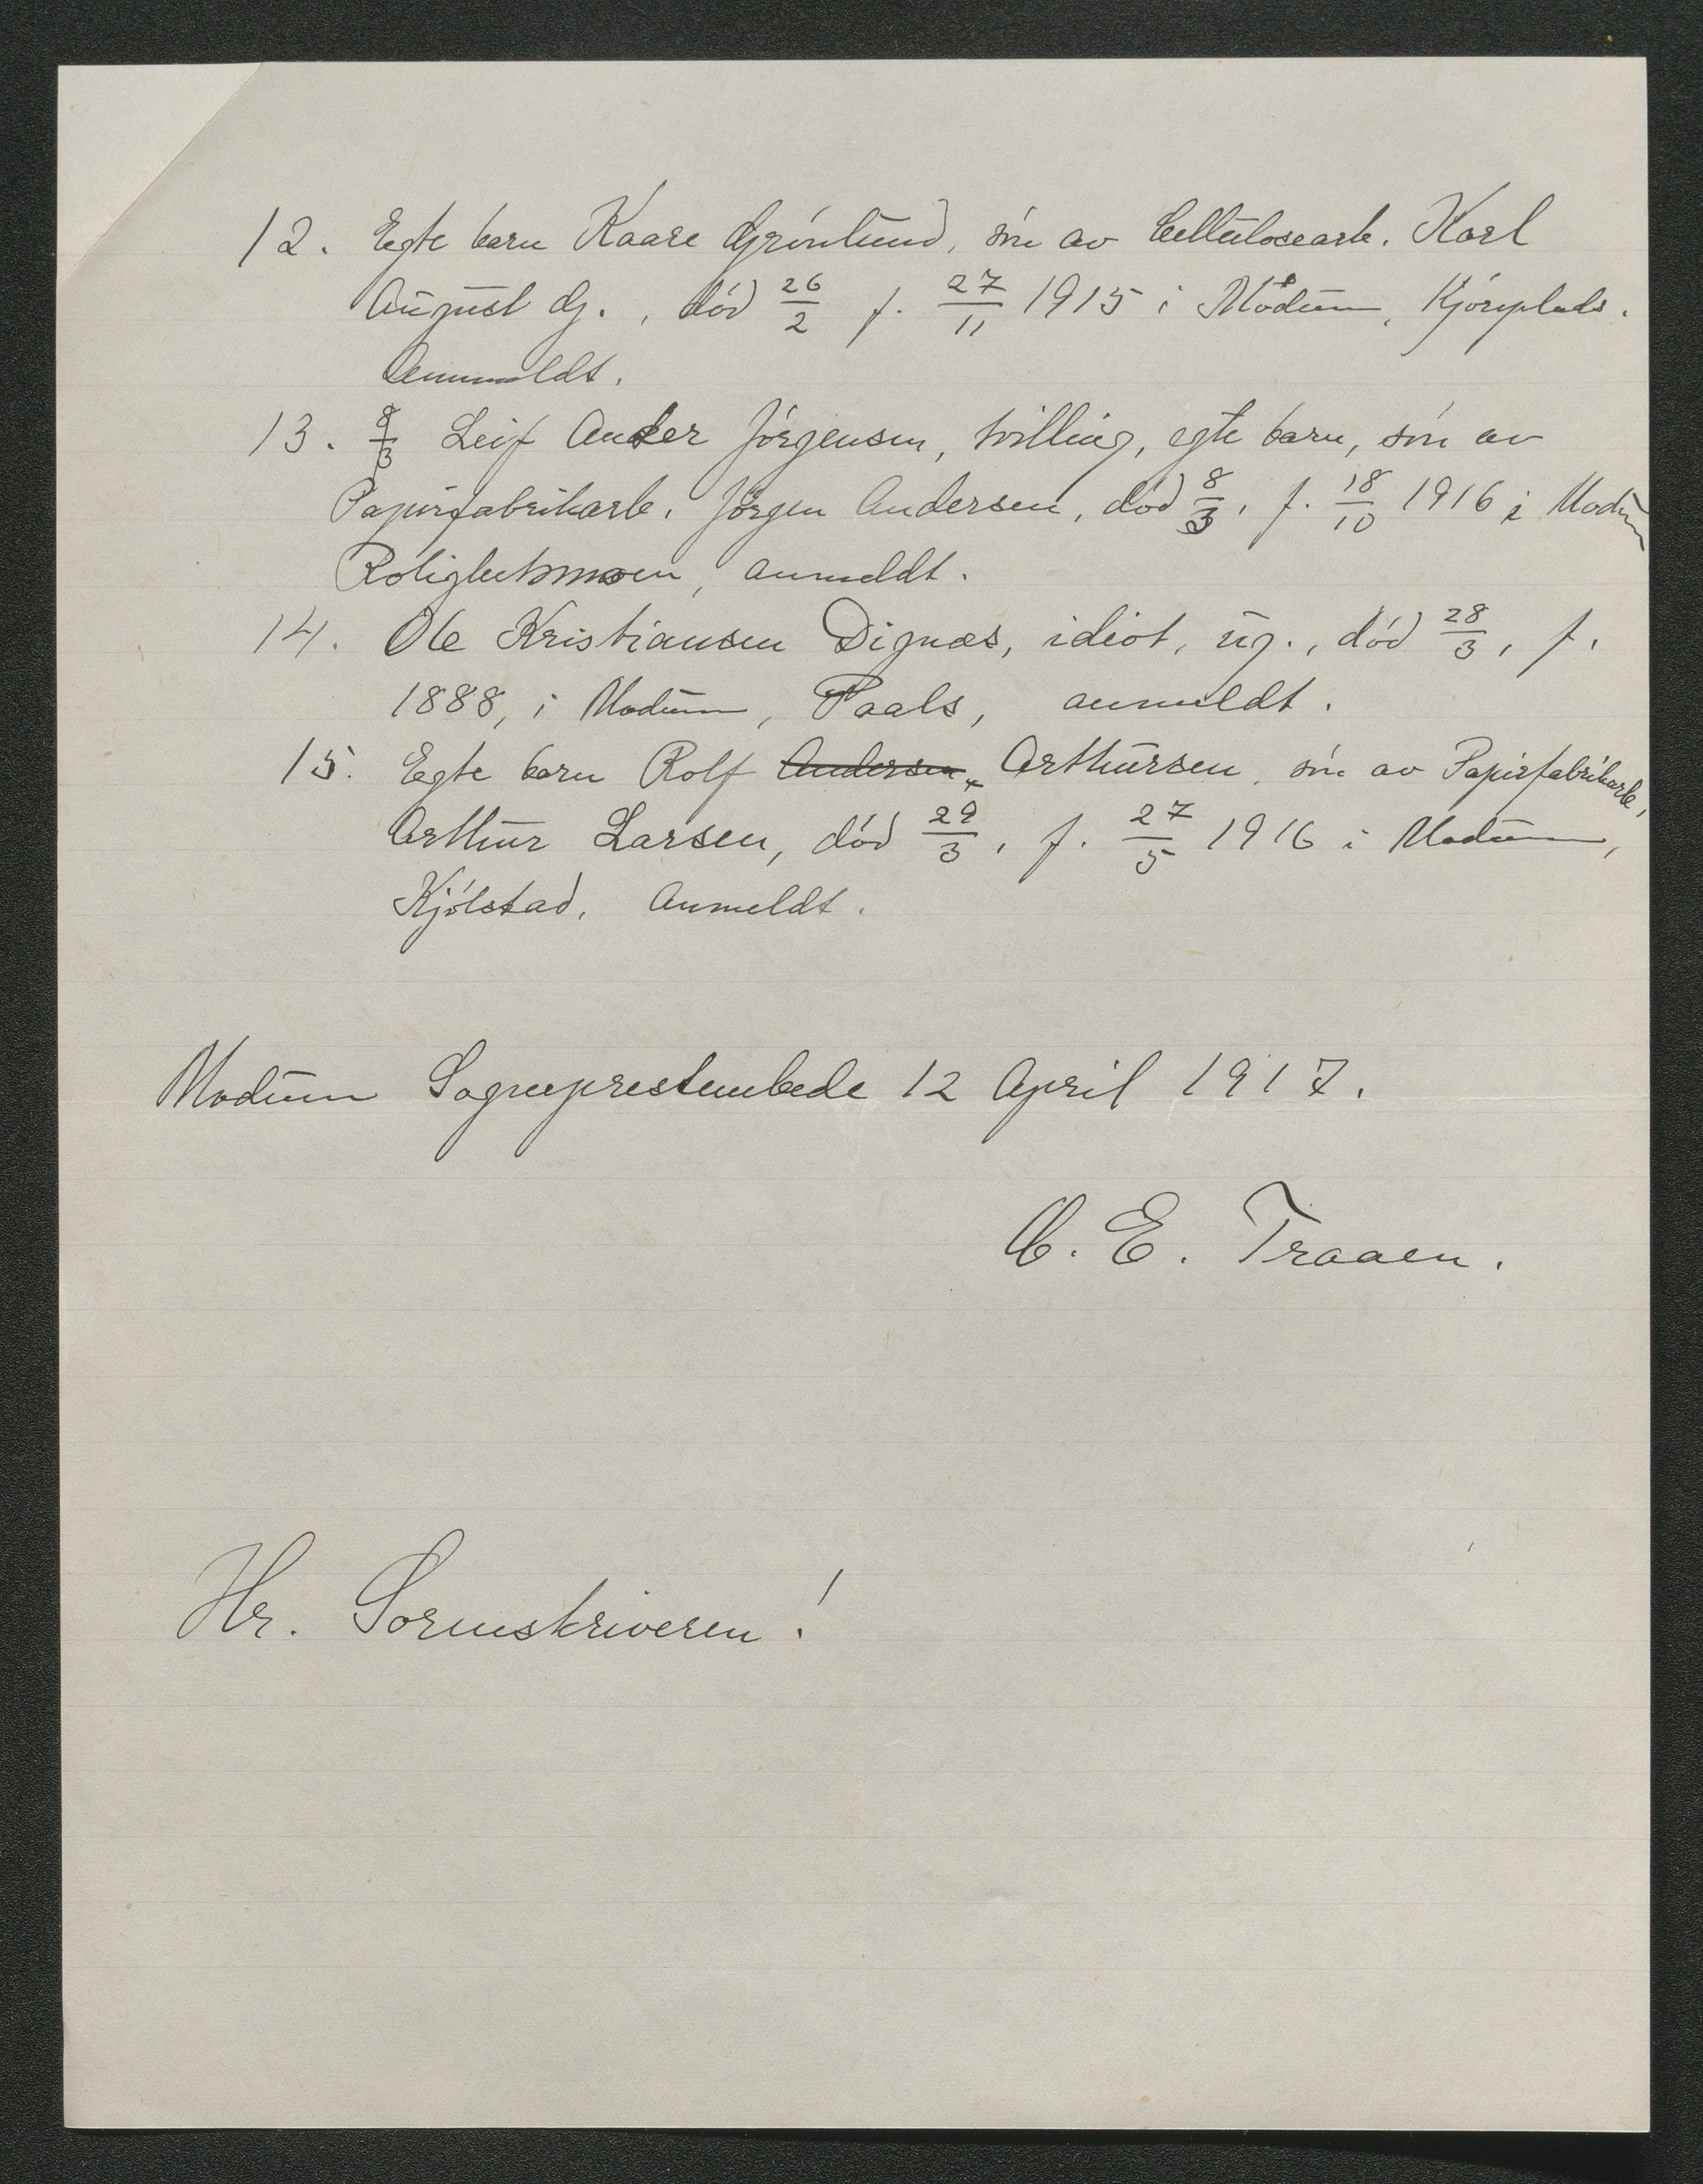 12. Egte barn Kaare Grönlund, sön av Cellulosearb. Karl
August G., död 26/2 f. 27/11 1915 i Modum, Kjörplads.
Anmeldt.
13. 8/3 Leif Anker Jörgensen, tvilling, egte barn, sön av
Papirfabrikarb. Jörgen Andersen, död 8/3, f. 18/10 1916 i Modum
Rolighetsmoen, anmeldt.
14. Ole Kristiansen Dignæs, idiot, ug., död 28/3, f.
1888, i Modum, Paals, anmeldt.
15. Egte barn Rolf Andersen Arthursen, sön av Papirfabrikarb.
Arthur Larsen, död 29/3, f. 27/5 1916 i Modum,
Kjölstad. Anmeldt.
Modum Sogneprestembede 12 April 1917.
C. E. Traaen.
Hr. Sorenskriveren!